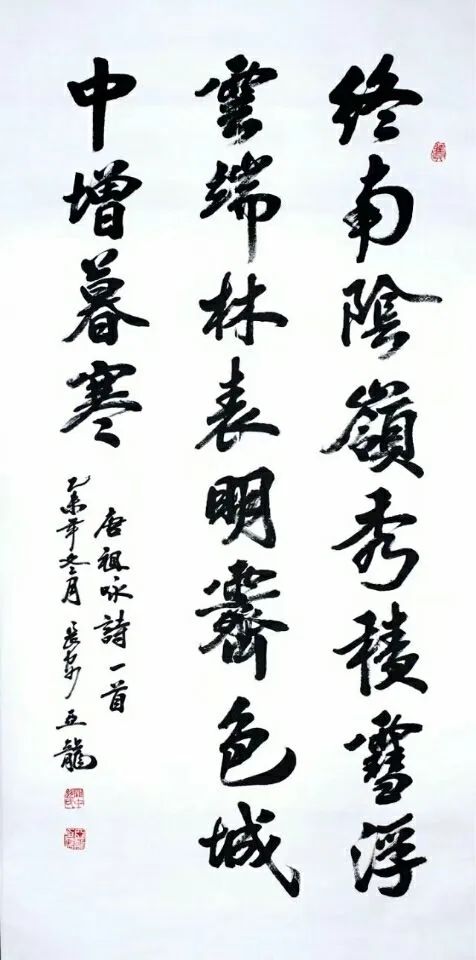 終南陰嶺秀積雪浮
雲端林表明霽色城
中增暮寒
唐祖咏詩一首
乙未年冬月長安五龍